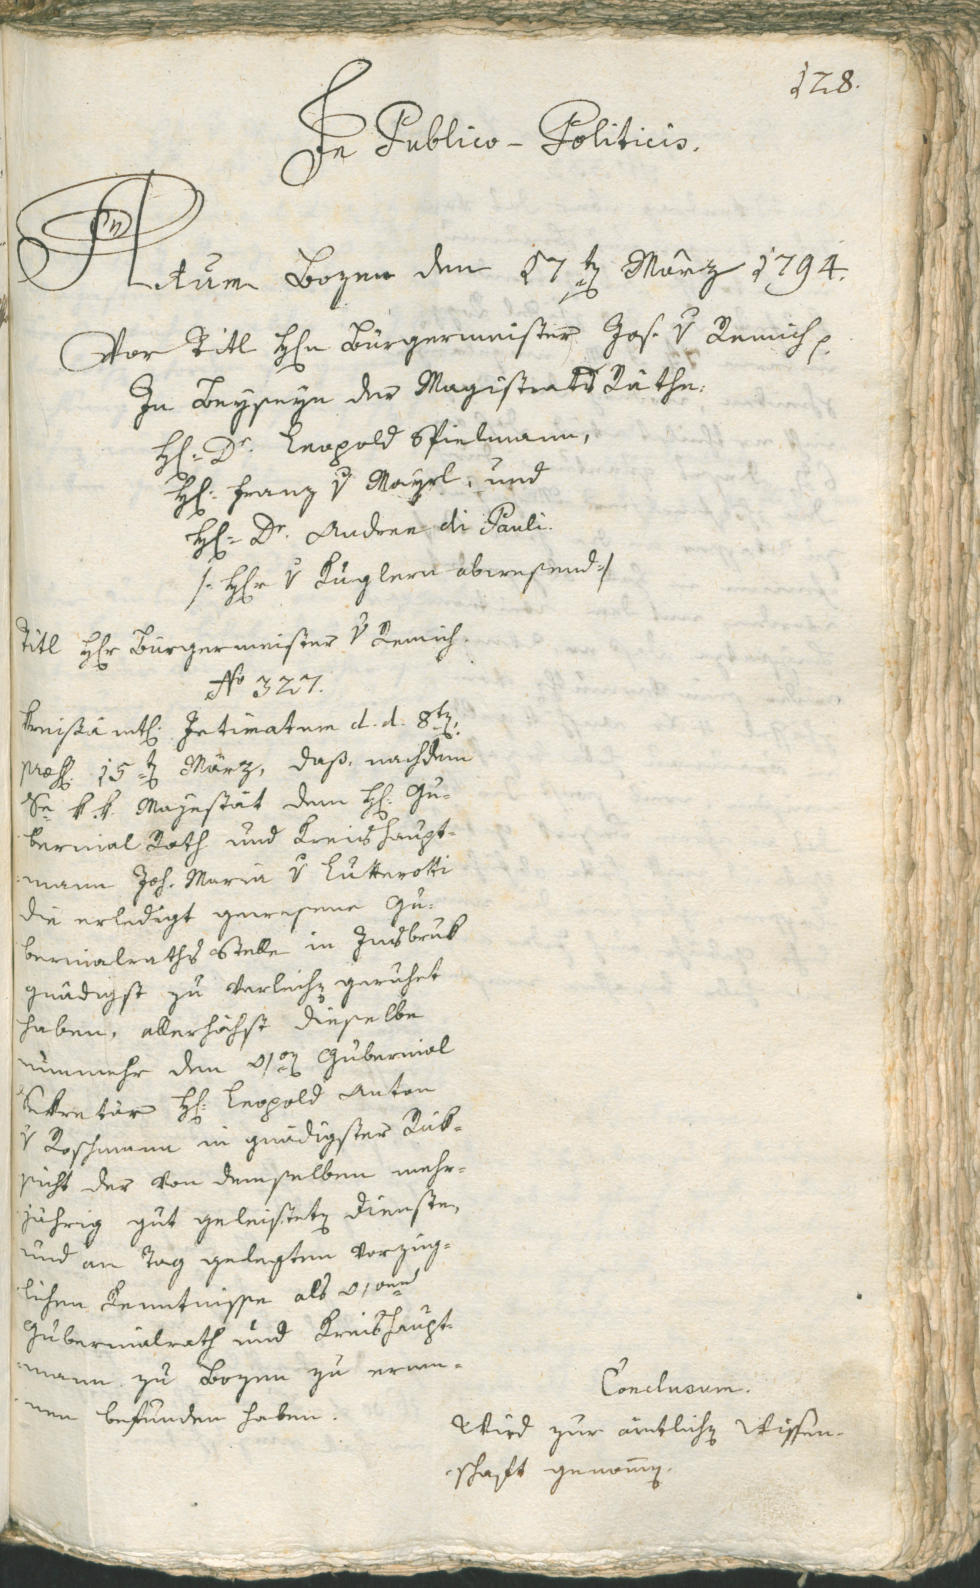 128.
In Publico-Politicis.
Actum Bozen den 17t März 1794.
Vor Titl Hℓn Bürgermeister Jos. v Remich p.
In Beyseyn der Magistrats Räthe:
Hℓ: Dr. Leopold Spielmann,
Hℓ: Franz v Mayrl, und
Hℓ: Dr. Andree di Pauli.
/: Hℓr v Kuglern abwesend :/
Titl Hℓr Bürgermeister v Remich.
No 327.
Kreisämtℓ: Intimatum d. d. 8t,
præs: 15t März, daß, nachdem
Se k. k. Mayestät dem Hℓ: Gu-
bernial Rath und Kreishaupt-
mann Joh. Maria v Lutterotti
die erledigt gewesene Gu-
bernialraths Stelle in Insbruk
gnädigst zu verleihen geruhet
haben, allerhöchst dieselbe
nunmehr dem Gubernial
Sekretär Hℓ: Leopold Anton
v Roschmann in gnädigster Rük-
sicht der von demselben mehr-
jährig gut geleisteten Dienste,
und an Tag gelegten vorzüg-
lichen Kenntnisse als
Gubernialrath und Kreishaupt-
mann zu Bozen zu ernen-
nen befunden haben.
Conclusum.
Wird zur ämtlichen Wissen-
schaft genommen.